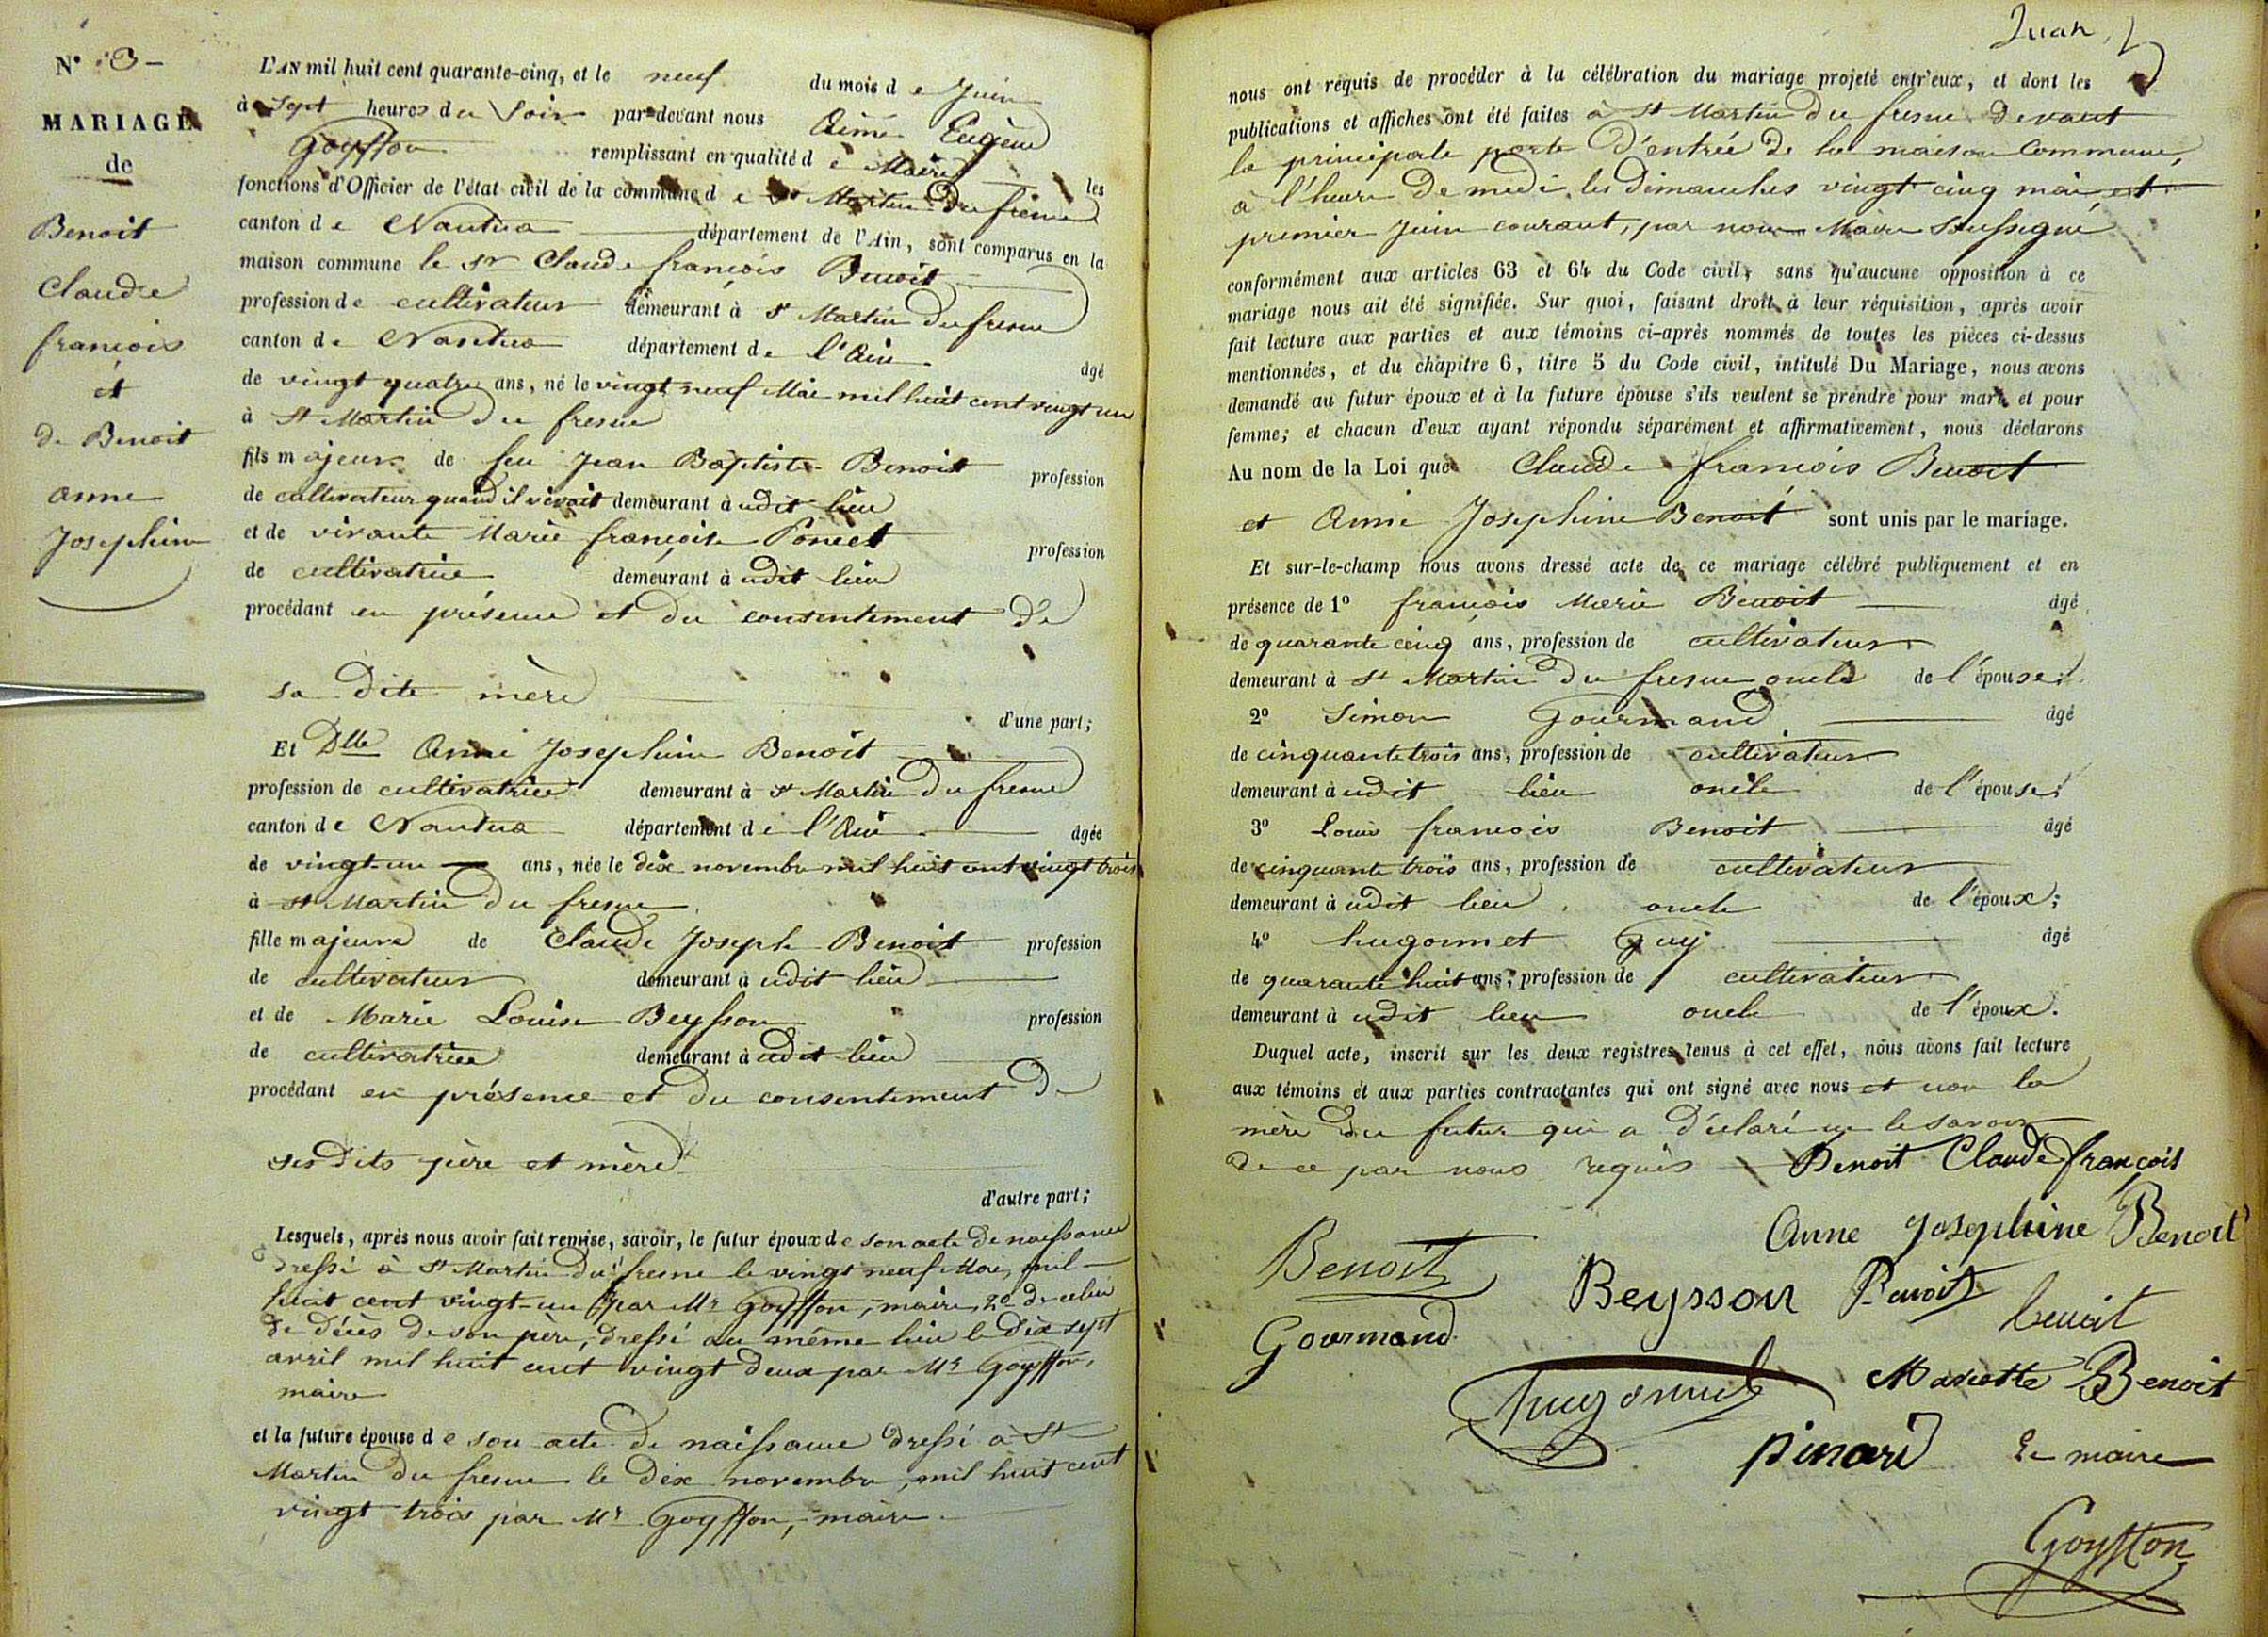 N° 3 -
MARIAGE
de
Benoit
Claude
francois
et
de Benoit
anne
Josephine
L'AN mil huit cent quarante-cinq, et le neuf du mois de Juin
à sept heures du soir par-devant nous Aimé Eugène
Goyffon remplissant en qualité de Maire les
fonctions d'Officier de l'état civil de la commune de St Martin du fresne
canton de Nantua département de l'Ain, sont comparus en la
maison commune le sr Claude françois Benoit
profession de cultivateur demeurant à St Martin du fresne
canton de Nantua département de l'Ain âgé
de vingt quatre ans, né le vingt neuf Mai mil huit cent vingt un
à St Martin du fresne
fils majeur de feu Jean Baptiste Benoit profession
de cultivateur quand il vivait demeurant à udit lieu
et de vivante Marie françoise Poncet profession
de cultivatrice demeurant à udit lieu
procédant en présence et du consentement de
sa dite mère
d'une part;
Et Dlle Anne Josephine Benoit
profession de cultivatrice demeurant à St Martin du fresne
canton de Nantua département de l'Ain âgée
de vingt-un ans, née le dix novembre mil huit cent vingt trois
à St Martin du fresne
fille majeure de Claude Joseph Benoit profession
de cultivateur demeurant à udit lieu
et de Marie Louise Beysson profession
de cultivatrice demeurant à udit lieu
procédant en présence et du consentement de
ses dits père et mère
d'autre part;
Lesquels, après nous avoir fait remise, savoir, le futur époux de son acte de naissance
dressé à St Martin du fresne le vingt neuf Mai, mil
huit cent vingt-un par Mr Goyffon, maire, 2° de celui
de décès de son père, dressé au même lieu le dix sept
avril mil huit cent vingt deux par Mr Goyffon,
maire
et la future épouse de son acte de naissance dressé à St
Martin du fresne le dix novembre, mil huit cent
vingt trois par Mr Goyffon, maire.
nous ont requis de procéder à la célébration du mariage projeté entr'eux, et dont les
publications et affiches ont été faites à St Martin du fresne devant
la principale porte d'entrée de la maison Commune,
à l'heure de midi les dimanches vingt cinq mai et
premier Juin courant, par nous Maire soussigné
conformément aux articles 63 et 64 du Code civil, sans qu'aucune opposition à ce
mariage nous ait été signifiée. Sur quoi, faisant droit à leur réquisition, après avoir
fait lecture aux parties et aux témoins ci-après nommés de toutes les pièces ci-dessus
mentionnées, et du chapitre 6, titre 5 du Code civil, intitulé Du Mariage, nous avons
demandé au futur époux et à la future épouse s'ils veulent se prendre pour mari et pour
femme; et chacun d'eux ayant répondu séparément et affirmativement, nous déclarons
Au nom de la Loi que Claude françois Benoit
et Anne Josephine Benoit sont unis par le mariage.
Et sur-le-champ nous avons dressé acte de ce mariage célébré publiquement et en
présence de 1° françois Marie Benoit âgé
de quarante cinq ans, profession de cultivateur
demeurant à St Martin du fresne oncle de l'épouse;
2° Simon Gourmand âgé
de cinquante trois ans, profession de cultivateur
demeurant à udit lieu oncle de l'épouse;
3° Louis francois Benoit âgé
de cinquante trois ans, profession de cultivateur
demeurant à udit lieu, oncle de l'époux;
4° hugonnet Guy âgé
de quarante huit ans, profession de cultivateur
demeurant à udit lieu oncle de l'époux.
Duquel acte, inscrit sur les deux registres tenus à cet effet, nous avons fait lecture
aux témoins et aux parties contractantes qui ont signé avec nous et non la
mère du futur qui a déclaré ne le savoir
de ce par nous requis Benoit Claude françois
Anne Josephine Benoit
Benoit Beysson Benoit benoit
Gourmand
hugonnet Mariette Benoit
pinard Le maire
Goyffon